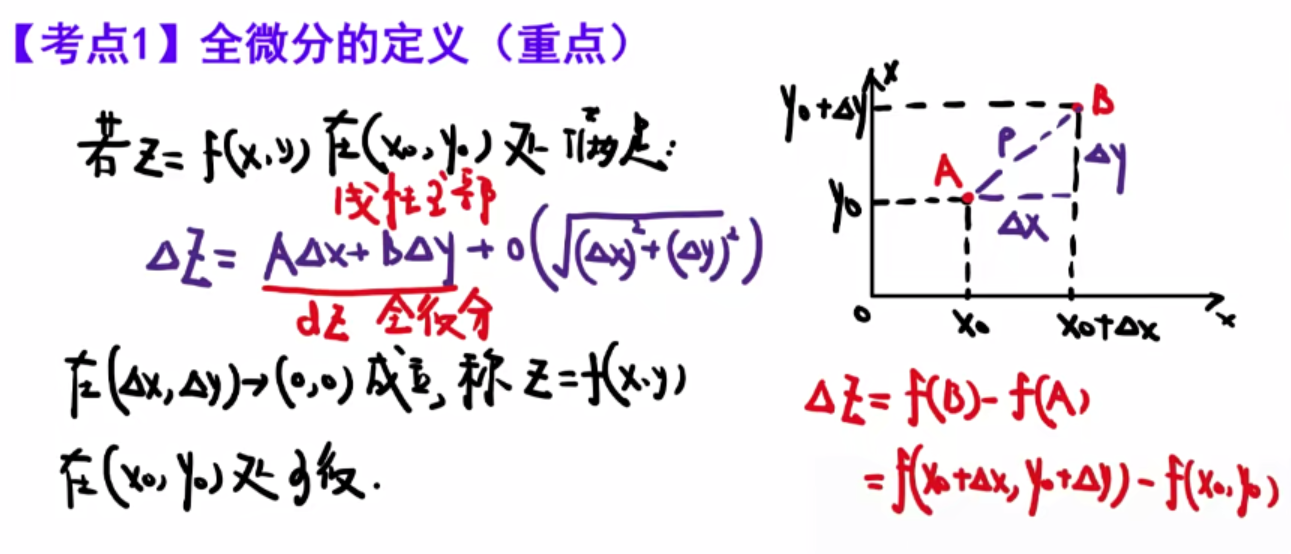 【考点1】全微分的定义（重点）
若z=f(x,y)在(x₀,y₀)处满足:
线性主部
Δz=AΔx+BΔy+o(√((Δx)²+(Δy)²))
dz 全微分
在(Δx,Δy)→(0,0)成立,称z=f(x,y)
在(x₀,y₀)处可微.
x
y₀+Δy
B
ρ
Δy
A
y₀
Δx
0
x₀
x₀+Δx
x
Δz=f(B)-f(A)
=f(x₀+Δx,y₀+Δy)-f(x₀,y₀)